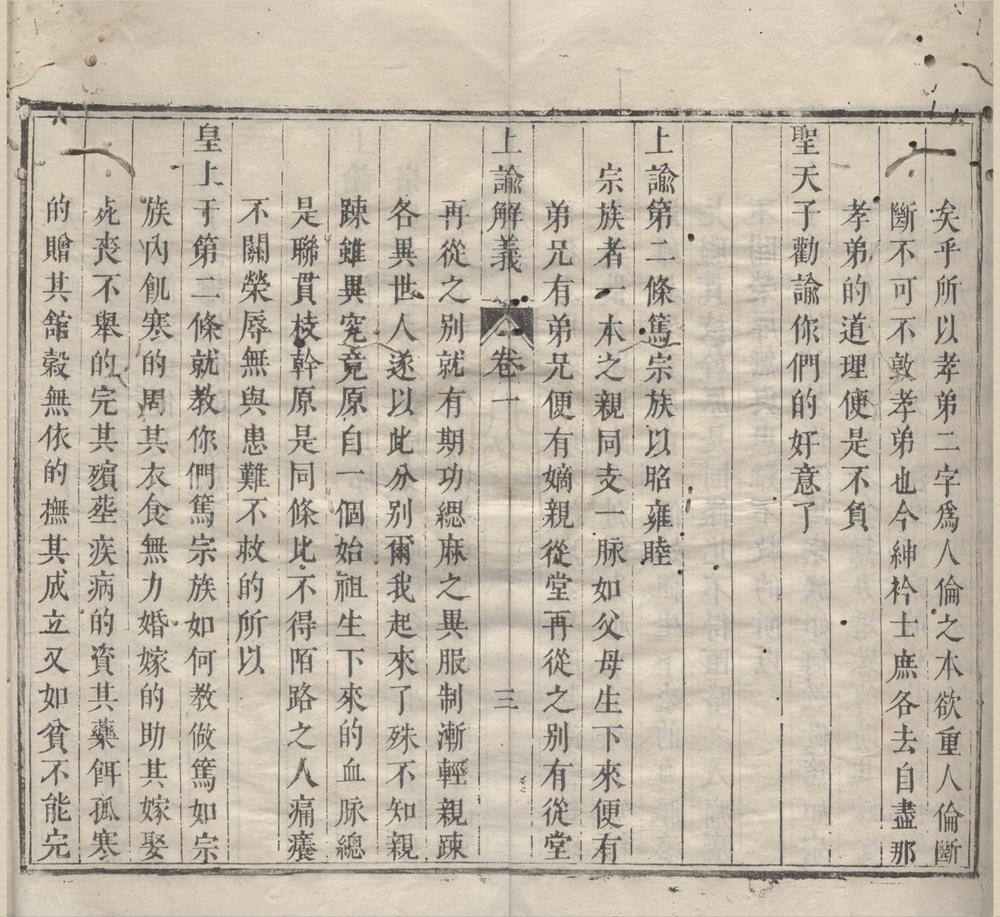 矣乎所以孝弟二字爲人倫之本欲重人倫斷
斷不可不敦孝弟也今紳衿士庶各去自盡那
孝弟的道理便是不負
聖天子勸諭你們的好意了
上諭第二條篤宗族以昭雍睦
宗族者一本之親同支一脉如父母生下來便有
弟兄有弟兄便有嫡親從堂再從之別有從堂
上諭解義 卷一 三
再從之別就有期功緦麻之異服制漸輕親踈
各異世人遂以此分別爾我起來了殊不知親
踈雖異究竟原自一個始祖生下來的血脉總
是聯貫枝幹原是同條比不得陌路之人痛癢
不關榮辱無與患難不救的所以
皇上于第二條就教你們篤宗族如何教做篤如宗
族內飢寒的周其衣食無力婚嫁的助其嫁娶
死喪不舉的完其殯塟疾病的資其藥餌孤寒
的贈其館穀無依的撫其成立又如貧不能完